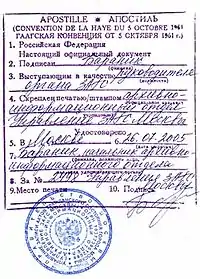 APOSTILLE - АПОСТИЛЬ
(CONVENTION DE LA HAYE DU 5 OCTOBRE 1961
ГААГСКАЯ КОНВЕНЦИЯ ОТ 5 ОКТЯБРЯ 1961 г.)
1. Российская Федерация
Настоящий официальный документ
2. Подписан Бараник
(фамилия)
3. Выступающим в качестве руководителя
органа ЗАГС
4. Скреплен печатью/штампом архивно-
информационный отдел
Управления ЗАГС Москвы
Удостоверено
5. В г. Москве 6. 26.07.2005
7. Бараник, начальник архивно-
информационного отдела
8. За № Управления ЗАГС
Москвы
9. Место печати 10. Подпись